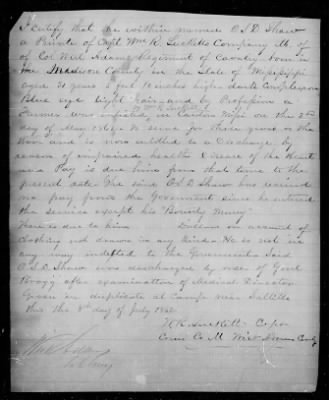 I certify that the within named O.S.D. Shaw
a Private of Capt Wm R. Lucketts Company M. of
of Col Wirt Adams Regiment of Cavalry born in
the Madison County in the State of Mississippi
aged 21 years 5 feet 10 inches high dark Complexion
Blue eyes light Hair and by Profession a
Farmer was enlisted in Canton Miss on the 2nd
day of May 1861 to serve for three years or the
War and is now entitled to a Discharge by
reason of impaired health & disease of the Heart
Pay is due him from that time to the
present date The said O.S.D. Shaw has received
no pay from the Government since he entered
the service except his "Bounty Money"
There is due to him Dollars on account of
clothing not drawn in any kind. He is not in
any way indebted to the Government. Said
O.S.D. Shaw was discharged by order of Genl
Bragg after examination of Medical Director
Given in duplicate at Camp near Saltillo
this the 8th day of July 1862
W R Luckett Capt
Comg Co M Wirt Adams Cavly
Wirt Adams